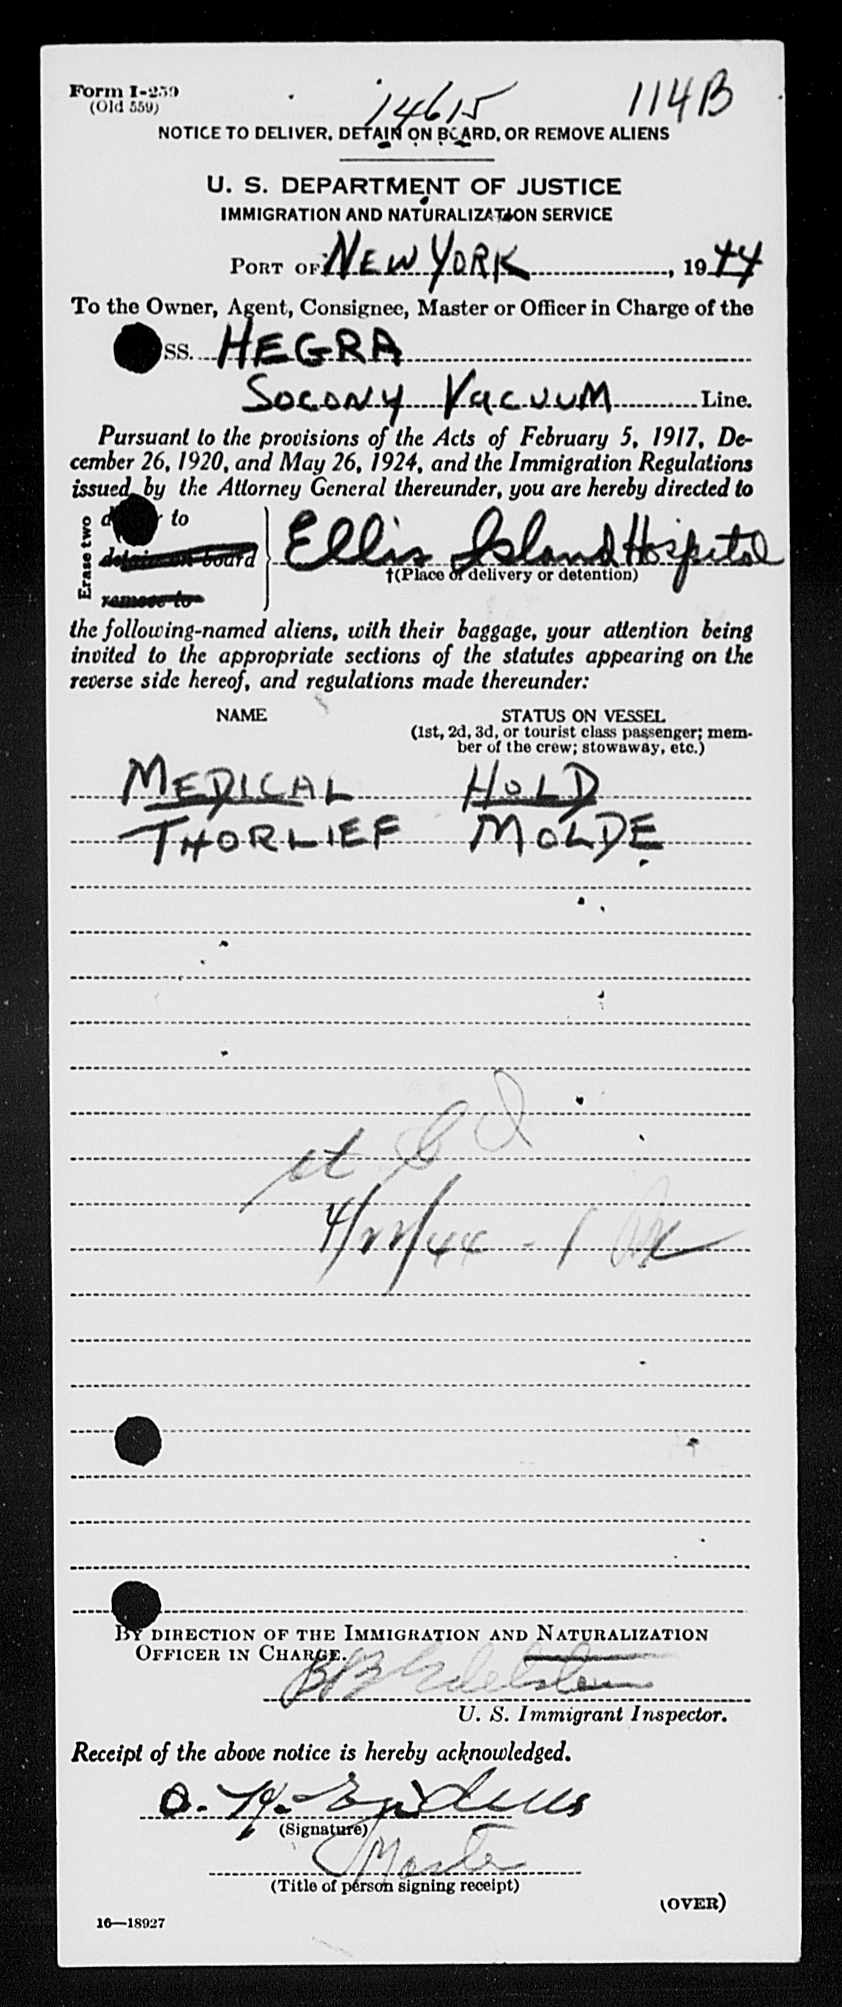 Form I-259
(Old 559)
14615
114B
NOTICE TO DELIVER, DETAIN ON BOARD, OR REMOVE ALIENS
U. S. DEPARTMENT OF JUSTICE
IMMIGRATION AND NATURALIZATION SERVICE
PORT OF NEW YORK, 1944
To the Owner, Agent, Consignee, Master or Officer in Charge of the
SS. HEGRA
SOCONY VACUUM Line.
Pursuant to the provisions of the Acts of February 5, 1917, De-
cember 26, 1920, and May 26, 1924, and the Immigration Regulations
issued by the Attorney General thereunder, you are hereby directed to
Erase two
to
detain on board
remove to
Ellis Island Hospital
†(Place of delivery or detention)
the following-named aliens, with their baggage, your attention being
invited to the appropriate sections of the statutes appearing on the
reverse side hereof, and regulations made thereunder:
NAME
STATUS ON VESSEL
(1st, 2d, 3d, or tourist class passenger; mem-
ber of the crew; stowaway, etc.)
MEDICAL HOLD
THORLIEF MOLDE
4/22/44 - 1
BY DIRECTION OF THE IMMIGRATION AND NATURALIZATION
OFFICER IN CHARGE.
Edelstein
U. S. Immigrant Inspector.
Receipt of the above notice is hereby acknowledged.
(Signature)
Master
(Title of person signing receipt)
(OVER)
16—18927